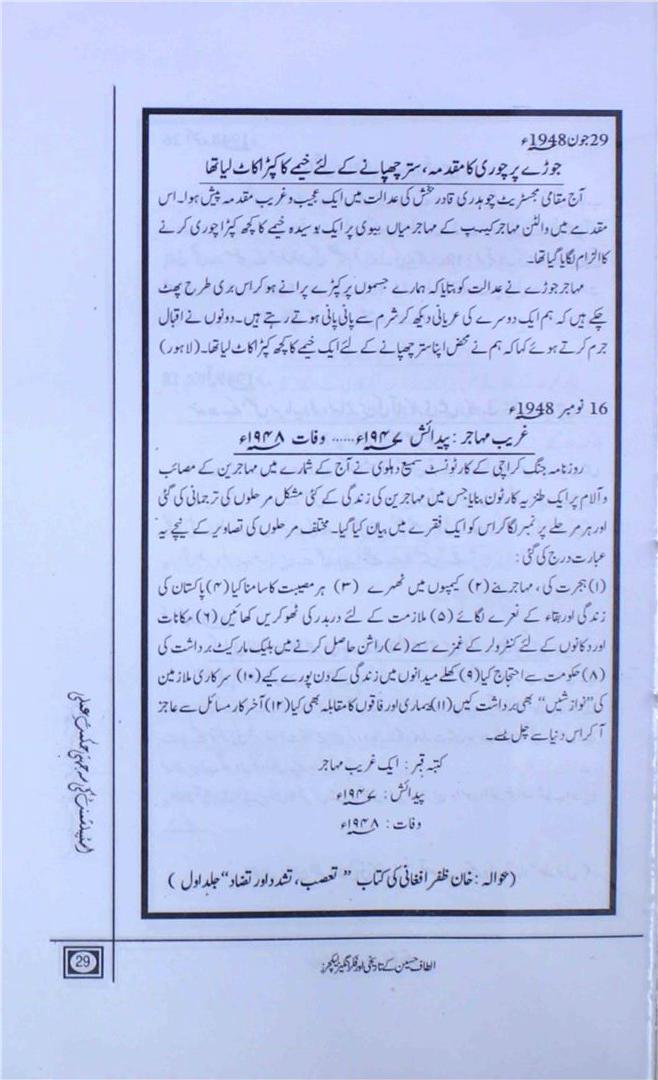 29 جون 1948ء
جوڑے پر چوری کا مقدمہ، ستر چھپانے کے لئے خیمے کا کپڑا کاٹ لیا تھا
آج مقامی مجسٹریٹ چوہدری قادر بخش کی عدالت میں ایک عجیب و غریب مقدمہ پیش ہوا۔ اس
مقدمے میں والٹن مہاجر کیمپ کے مہاجر میاں بیوی پر ایک بوسیدہ خیمے کا کچھ کپڑا چوری کرنے
کا الزام لگایا گیا تھا۔
مہاجر جوڑے نے عدالت کو بتایا کہ ہمارے جسموں پر کپڑے پرانے ہو کر اس بری طرح پھٹ
چکے ہیں کہ ہم ایک دوسرے کی عریانی دیکھ کر شرم سے پانی پانی ہوتے رہتے ہیں۔ دونوں نے اقبال
جرم کرتے ہوئے کہا کہ ہم نے محض اپنا ستر چھپانے کے لئے ایک خیمے کا کچھ کپڑا کاٹ لیا تھا۔ (لاہور)
16 نومبر 1948ء
غریب مہاجر : پیدائش ۱۹۴۷ء ...... وفات ۱۹۴۸ء
روزنامہ جنگ کراچی کے کارٹونسٹ سمیع دہلوی نے آج کے شمارے میں مہاجرین کے مصائب
و آلام پر ایک طنزیہ کارٹون بنایا جس میں مہاجرین کی زندگی کے کئی مشکل مرحلوں کی ترجمانی کی گئی
اور ہر مرحلے پر نمبر لگا کر اس کو ایک فقرے میں بیان کیا گیا۔ مختلف مرحلوں کی تصاویر کے نیچے یہ
عبارت درج کی گئی :
(۱) ہجرت کی، مہاجر بنے (۲) کیمپوں میں ٹھہرے (۳) ہر مصیبت کا سامنا کیا (۴) پاکستان کی
زندگی اور بقاء کے نعرے لگائے (۵) ملازمت کے لئے دربدر کی ٹھوکریں کھائیں (۶) مکانات
اور دکانوں کے لئے کنٹرولر کے غمزے سہے (۷) راشن حاصل کرنے میں بلیک مارکیٹ برداشت کی
(۸) حکومت سے احتجاج کیا (۹) کھلے میدانوں میں زندگی کے دن پورے کیے (۱۰) سرکاری ملازمین
کی "نوازشیں" بھی برداشت کیں (۱۱) بیماری اور فاقوں کا مقابلہ بھی کیا (۱۲) آخر کار مسائل سے عاجز
آ کر اس دنیا سے چل بسے۔
کتبہ قبر : ایک غریب مہاجر
پیدائش : ۱۹۴۷ء
وفات : ۱۹۴۸ء
(حوالہ : خان ظفر افغانی کی کتاب "تعصب، تشدد اور تضاد" جلد اول)
کی سہ جہتی حکمت عملی
29
الطاف حسین کے تاریخی اور فکر انگیز لیکچرز